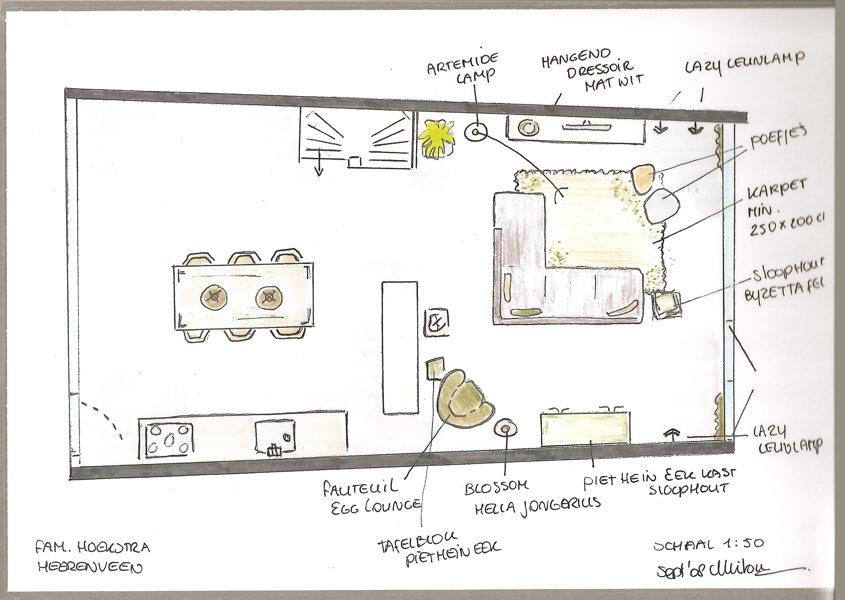 ARTEMIDE
LAMP
HANGEND
DRESSOIR
MAT WIT
LAZY LEUNLAMP
POEFJES
KARPET
MIN.
250 X 200 CM
SLOOPHOUT
BYZETTAFEL
LAZY
LEUNLAMP
FAUTEUIL
EGG LOUNGE
BLOSSOM
HELLA JONGERIUS
PIET HEIN EEK KAST
SLOOPHOUT
TAFELBLOK
PIET HEIN EEK
FAM. HOEKSTRA
HEERENVEEN
SCHAAL 1:50
sept '08